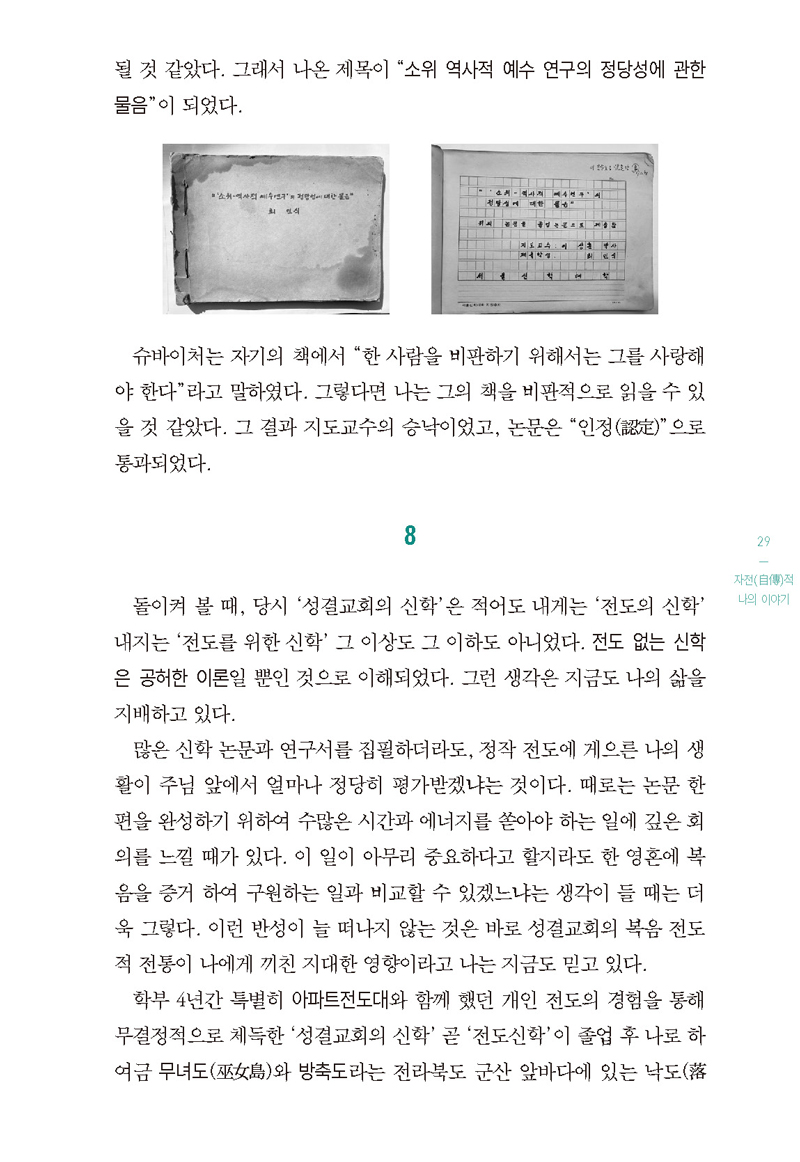 될 것 같았다. 그래서 나온 제목이 “소위 역사적 예수 연구의 정당성에 관한
물음”이 되었다.
“‘소위-역사적 예수연구’의 정당성에 대한 물음”
최 인 식
“‘소위-역사적 예수연구’의
정당성에 대한 물음”
위의 논문을 졸업논문으로 제출함
지도교수:
제출학생: 최 인 식
서 울 신 학 대 학
슈바이처는 자기의 책에서 “한 사람을 비판하기 위해서는 그를 사랑해
야 한다”라고 말하였다. 그렇다면 나는 그의 책을 비판적으로 읽을 수 있
을 것 같았다. 그 결과 지도교수의 승낙이었고, 논문은 “인정(認定)”으로
통과되었다.
8
29
자전(自傳)적
나의 이야기
돌이켜 볼 때, 당시 ‘성결교회의 신학’은 적어도 내게는 ‘전도의 신학’
내지는 ‘전도를 위한 신학’ 그 이상도 그 이하도 아니었다. 전도 없는 신학
은 공허한 이론일 뿐인 것으로 이해되었다. 그런 생각은 지금도 나의 삶을
지배하고 있다.
많은 신학 논문과 연구서를 집필하더라도, 정작 전도에 게으른 나의 생
활이 주님 앞에서 얼마나 정당히 평가받겠냐는 것이다. 때로는 논문 한
편을 완성하기 위하여 수많은 시간과 에너지를 쏟아야 하는 일에 깊은 회
의를 느낄 때가 있다. 이 일이 아무리 중요하다고 할지라도 한 영혼에 복
음을 증거 하여 구원하는 일과 비교할 수 있겠느냐는 생각이 들 때는 더
욱 그렇다. 이런 반성이 늘 떠나지 않는 것은 바로 성결교회의 복음 전도
적 전통이 나에게 끼친 지대한 영향이라고 나는 지금도 믿고 있다.
학부 4년간 특별히 아파트전도대와 함께 했던 개인 전도의 경험을 통해
무결정적으로 체득한 ‘성결교회의 신학’ 곧 ‘전도신학’이 졸업 후 나로 하
여금 무녀도(巫女島)와 방축도라는 전라북도 군산 앞바다에 있는 낙도(落